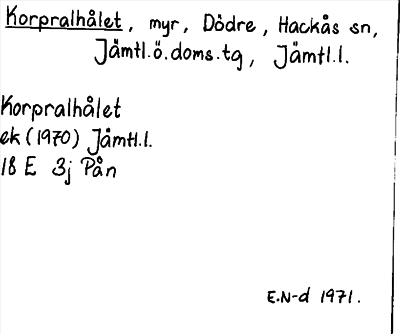 Korpralhålet, myr, Dödre, Hackås sn,
Jämtl.ö.doms.tg, Jämtl.l.
Korpralhålet
ek (1970) Jämtl.l.
18 E 3j Pån
E.N-d 1971.